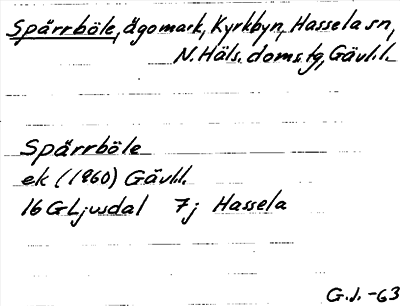 Spärrböle, ägomark, Kyrkbyn, Hassela sn,
N. Häls. doms.tg, Gävl.l.
Spärrböle
ek (1960) Gävl.l.
16 G Ljusdal 7j Hassela
G.J. -63